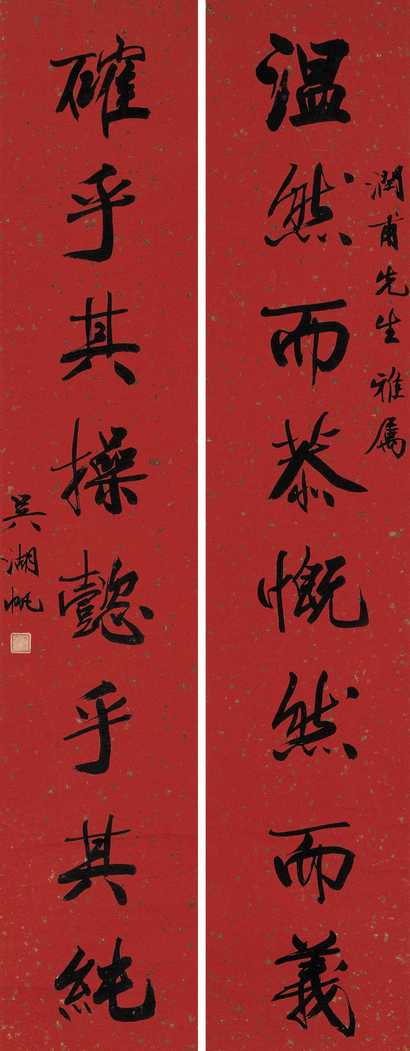 潤甫先生雅属
溫然而恭慨然而義
確乎其操懿乎其純
吳湖帆